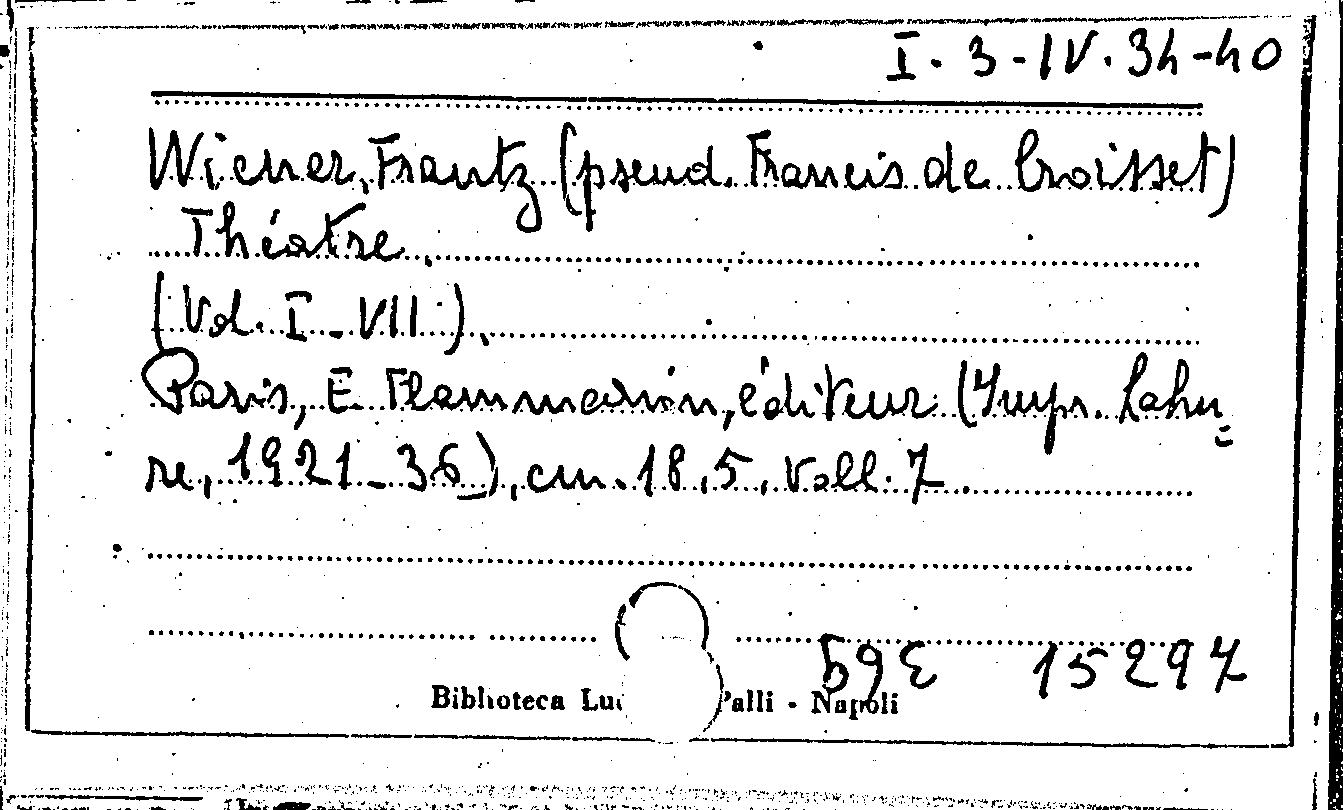 I. 3 - IV. 34-40
Wiener, Frantz (pseud. Francis de Croisset)
Théatre.
(Vol. I - VII).
Paris, E. Flammarion, éditeur (Impr. Lahu=
re, 1921-36), cm. 18,5, Voll. 7.
15297
Biblioteca Palli - Napoli